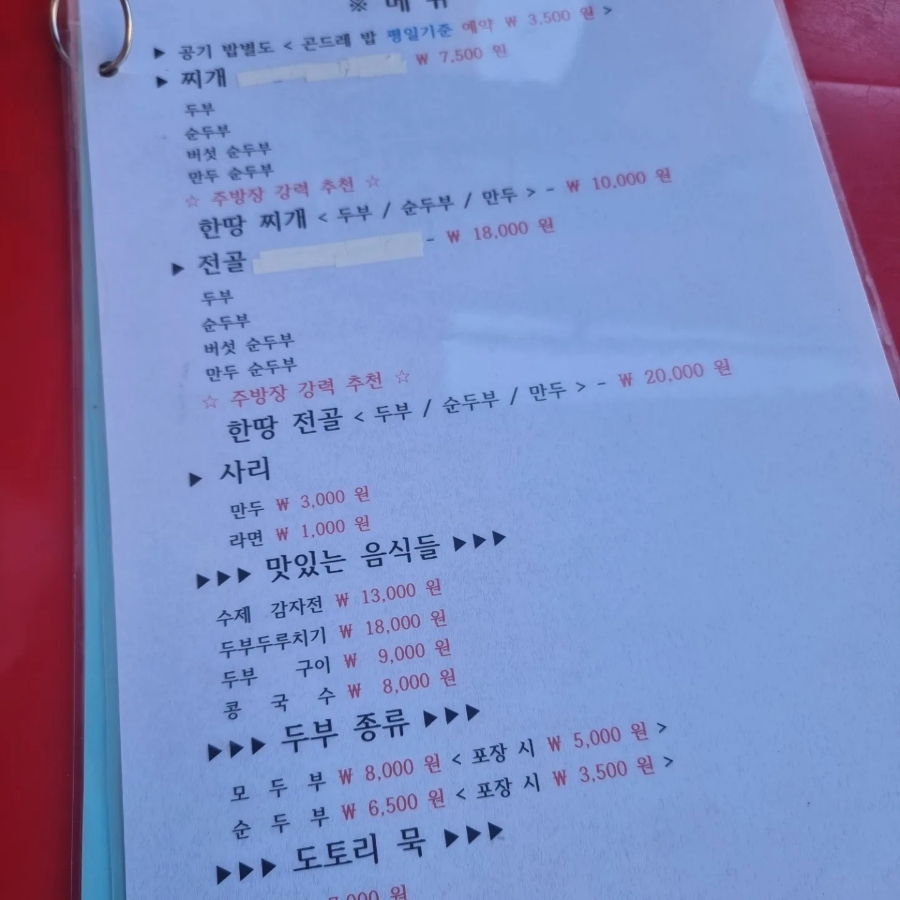 ※ 메 뉴
▶ 공기 밥별도 < 곤드레 밥 평일기준 예약 ₩ 3,500 원 >
▶ 찌개 ₩ 7,500 원
두부
순두부
버섯 순두부
만두 순두부
☆ 주방장 강력 추천 ☆
한땅 찌개 < 두부 / 순두부 / 만두 > - ₩ 10,000 원
▶ 전골 - ₩ 18,000 원
두부
순두부
버섯 순두부
만두 순두부
☆ 주방장 강력 추천 ☆
한땅 전골 < 두부 / 순두부 / 만두 > - ₩ 20,000 원
▶ 사리
만두 ₩ 3,000 원
라면 ₩ 1,000 원
▶▶▶ 맛있는 음식들 ▶▶▶
수제 감자전 ₩ 13,000 원
두부두루치기 ₩ 18,000 원
두부 구이 ₩ 9,000 원
콩 국 수 ₩ 8,000 원
▶▶▶ 두부 종류 ▶▶▶
모 두 부 ₩ 8,000 원 < 포장 시 ₩ 5,000 원 >
순 두 부 ₩ 6,500 원 < 포장 시 ₩ 3,500 원 >
▶▶▶ 도토리 묵 ▶▶▶
원